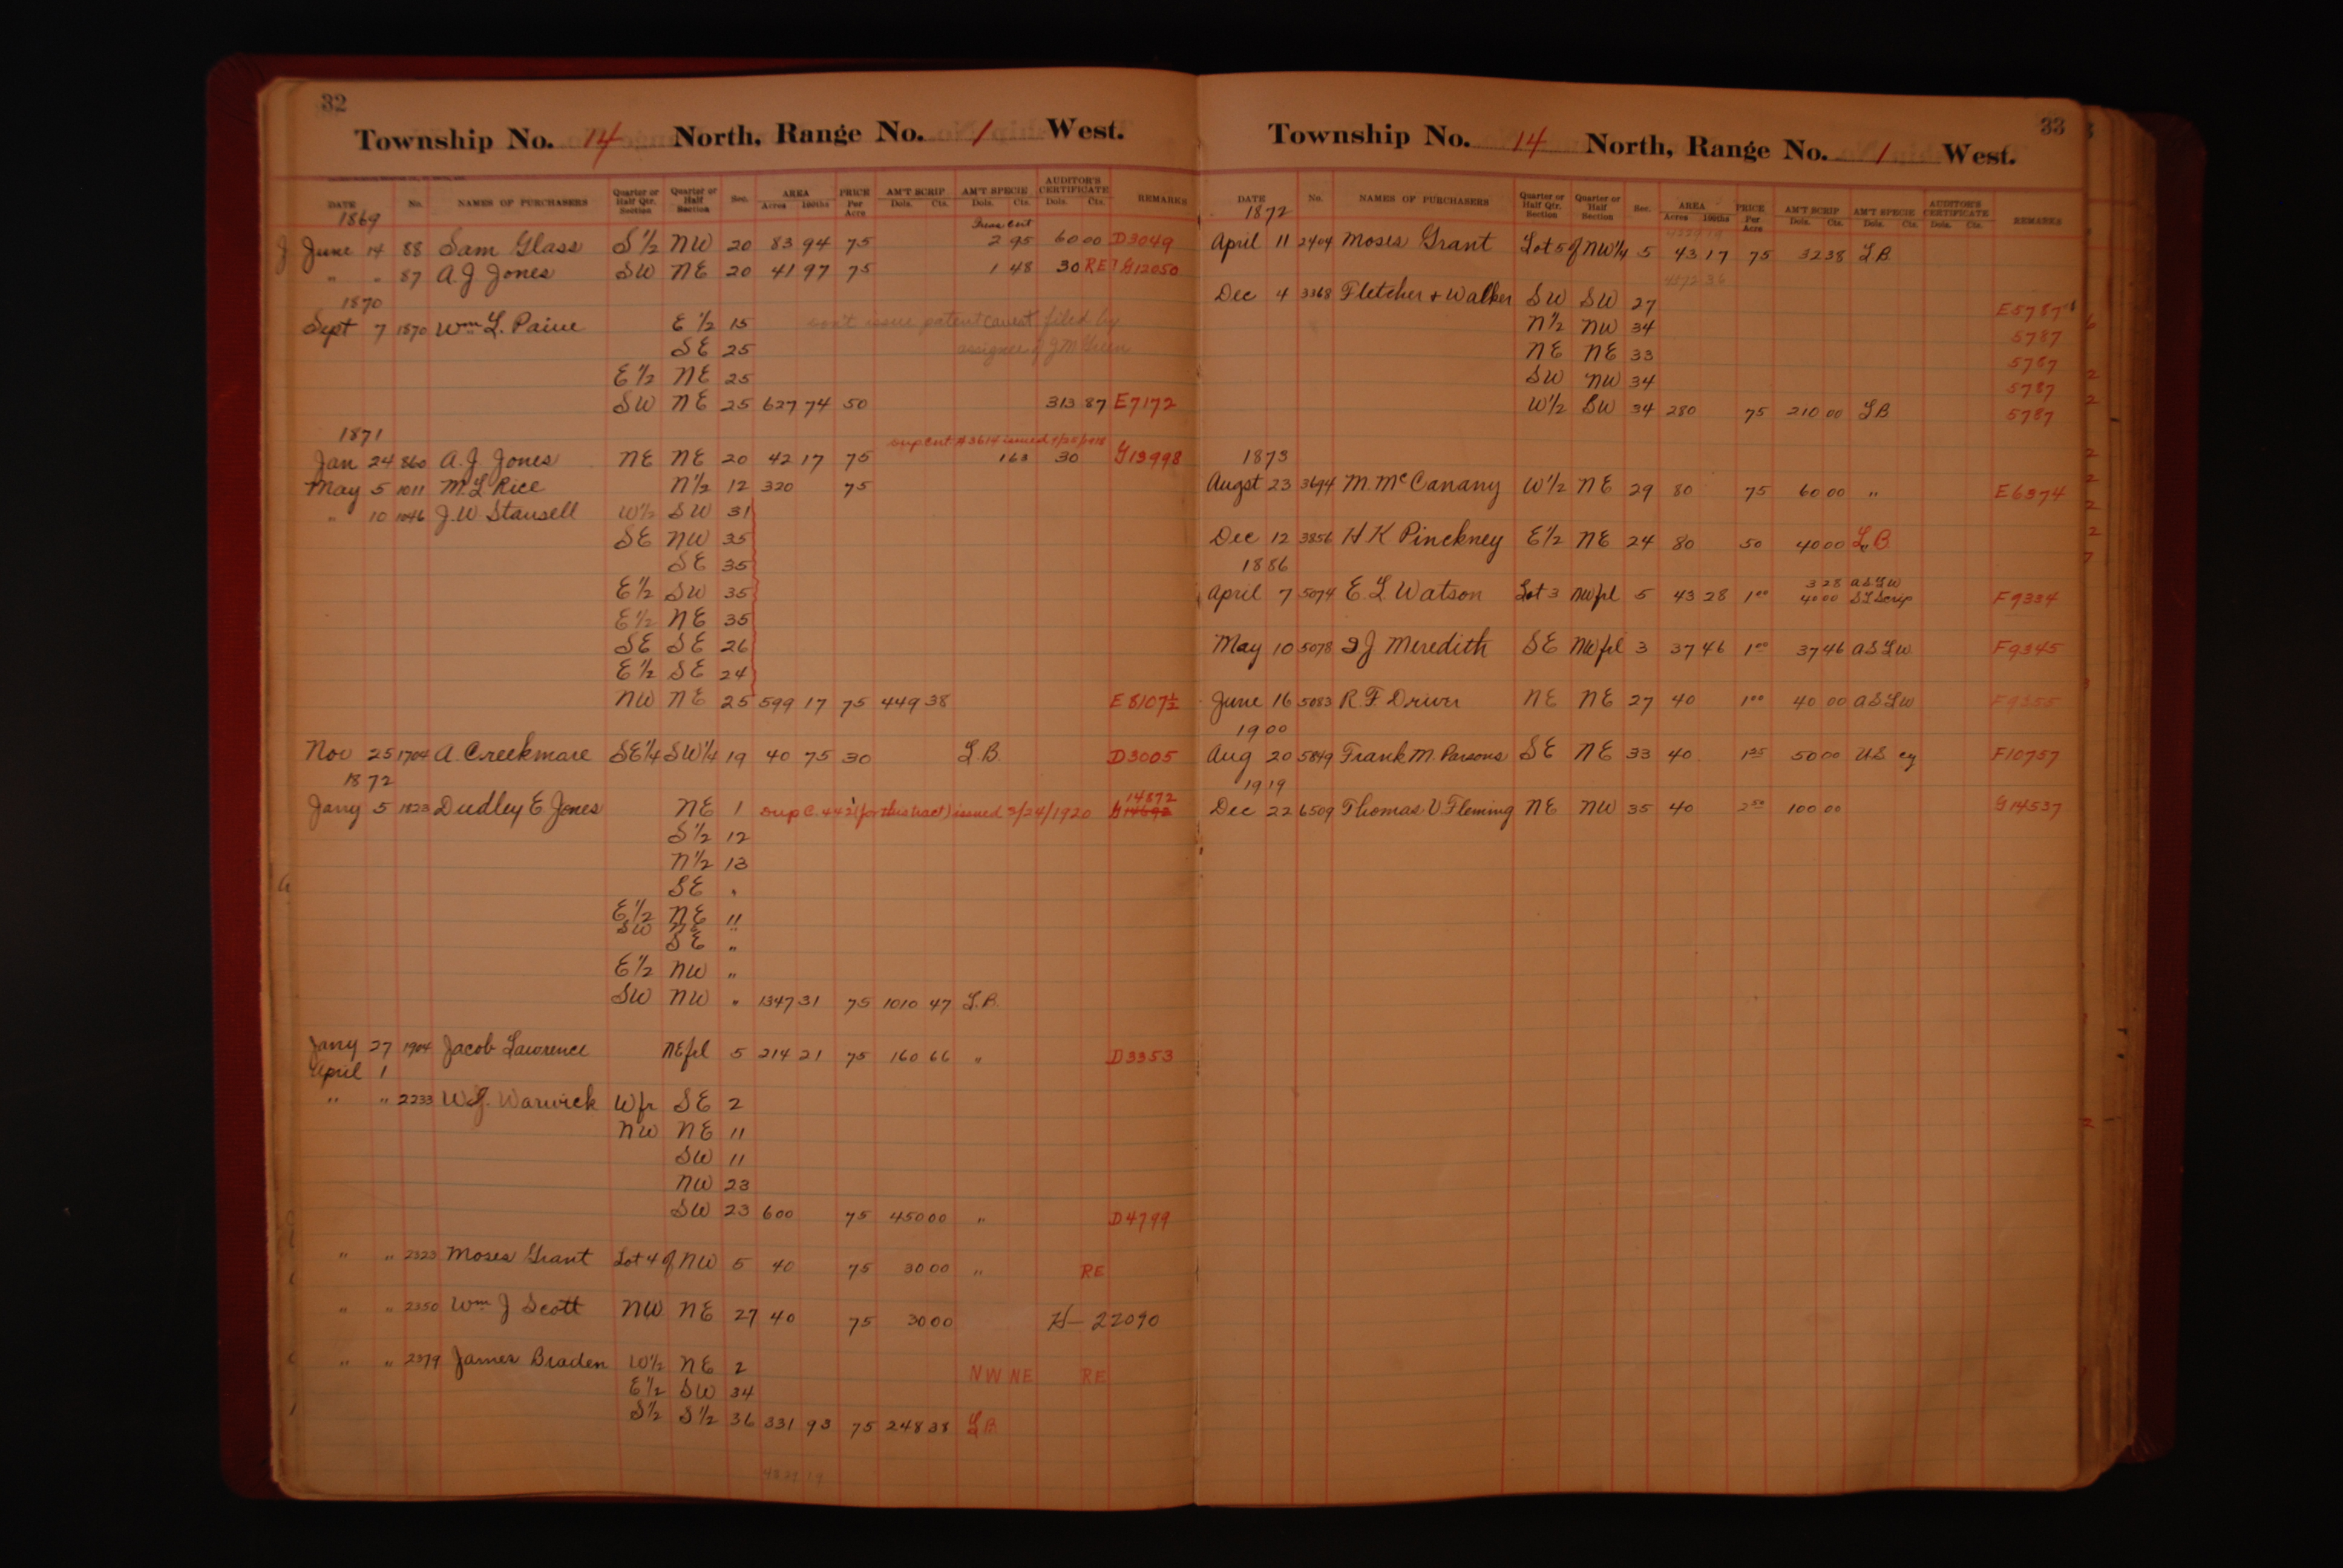 32
Township No. 14 North, Range No. 1 West.
DATE No. NAMES OF PURCHASERS Quarter or Half Qtr. Section Quarter or Half Section Sec. AREA Acres 100ths PRICE Per Acre AM'T SCRIP Dols. Cts. AM'T SPECIE Dols. Cts. AUDITOR'S CERTIFICATE Dols. Cts. REMARKS
1869
June 14 88 Sam Glass S½ NW 20 83 94 75 2 95 60 00 D3049
" " 87 A.J Jones SW NE 20 41 97 75 1 48 30 RE G12050
1870
Sept 7 1870 Wm L. Paine E½ 15 don't issue patent caveat filed by
SE 25 assignee of J M Green
E½ NE 25
SW NE 25 627 74 50 313 87 E7172
1871
sup Cert # 3614 issued
Jan 24 860 A.J. Jones NE NE 20 42 17 75 1 63 30 G13998
May 5 1011 M.L Rice N½ 12 320 75
" 10 1046 J.W Stansell W½ SW 31
SE NW 35
SE 35
E½ SW 35
E½ NE 35
SE SE 26
E½ SE 24
NW NE 25 599 17 75 449 38 E8107½
Nov 25 1704 A. Creekmore SE¼ SW¼ 19 40 75 30 L.B. D3005
1872
14872
Jany 5 1823 Dudley E Jones NE 1 sup C. 442 (for this tract) issued 3/24/1920 G14692
S½ 12
N½ 13
SE "
E½ NE 11
SW NE "
SE "
E½ NW "
SW NW " 1347 31 75 1010 47 L.B.
Jany 27 1904 Jacob Lawrence NE frl 5 214 21 75 160 66 " D3353
April 1
" " 2233 W.J. Warwick W fr SE 2
NW NE 11
SW 11
NW 23
SW 23 600 75 450 00 " D4799
" " 2323 Moses Grant Lot 4 of NW 5 40 75 30 00 " RE
" " 2350 Wm J Scott NW NE 27 40 75 30 00 H- 22090
" " 2379 James Braden W½ NE 2 NW NE RE
E½ SW 34
S½ S½ 36 331 93 75 248 38 L.B.
33
Township No. 14 North, Range No. 1 West.
DATE No. NAMES OF PURCHASERS Quarter or Half Qtr. Section Quarter or Half Section Sec. AREA Acres 100ths PRICE Per Acre AM'T SCRIP Dols. Cts. AM'T SPECIE Dols. Cts. AUDITOR'S CERTIFICATE Dols. Cts. REMARKS
1872
April 11 2404 Moses Grant Lot 5 of NW¼ 5 43 17 75 32 38 L.B
Dec 4 3368 Fletcher & Walker SW SW 27 E5787
N½ NW 34 5787
NE NE 33 5787
SW NW 34 5787
W½ SW 34 280 75 210 00 L.B 5787
1873
Augst 23 3694 M. McCanany W½ NE 29 80 75 60 00 " E6374
Dec 12 3856 H K Pinckney E½ NE 24 80 50 40 00 L.B
1886
3 28 A S L W
April 7 5074 E. L Watson Lot 3 NW frl 5 43 28 1 00 40 00 S L Scrip F9334
May 10 5078 I J Meredith SE NW frl 3 37 46 1 00 37 46 A S L W F9345
June 16 5083 R. F. Driver NE NE 27 40 1 00 40 00 A S L W F9355
1900
Aug 20 5849 Frank M. Parsons SE NE 33 40 1 25 50 00 U.S cy F10757
1919
Dec 22 6509 Thomas V. Fleming NE NW 35 40 2 50 100 00 G14537